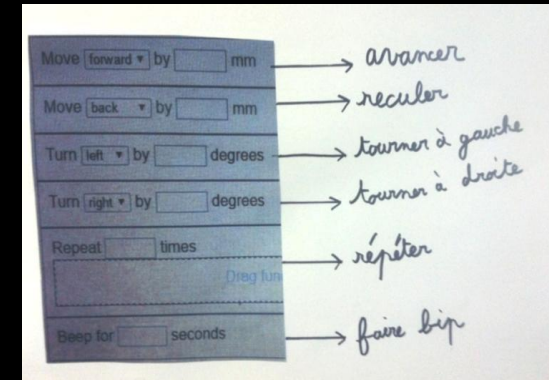 Move forward by mm avancer
Move back by mm reculer
Turn left by degrees tourner à gauche
Turn right by degrees tourner à droite
Repeat times
Drag fun
répéter
Beep for seconds faire bip